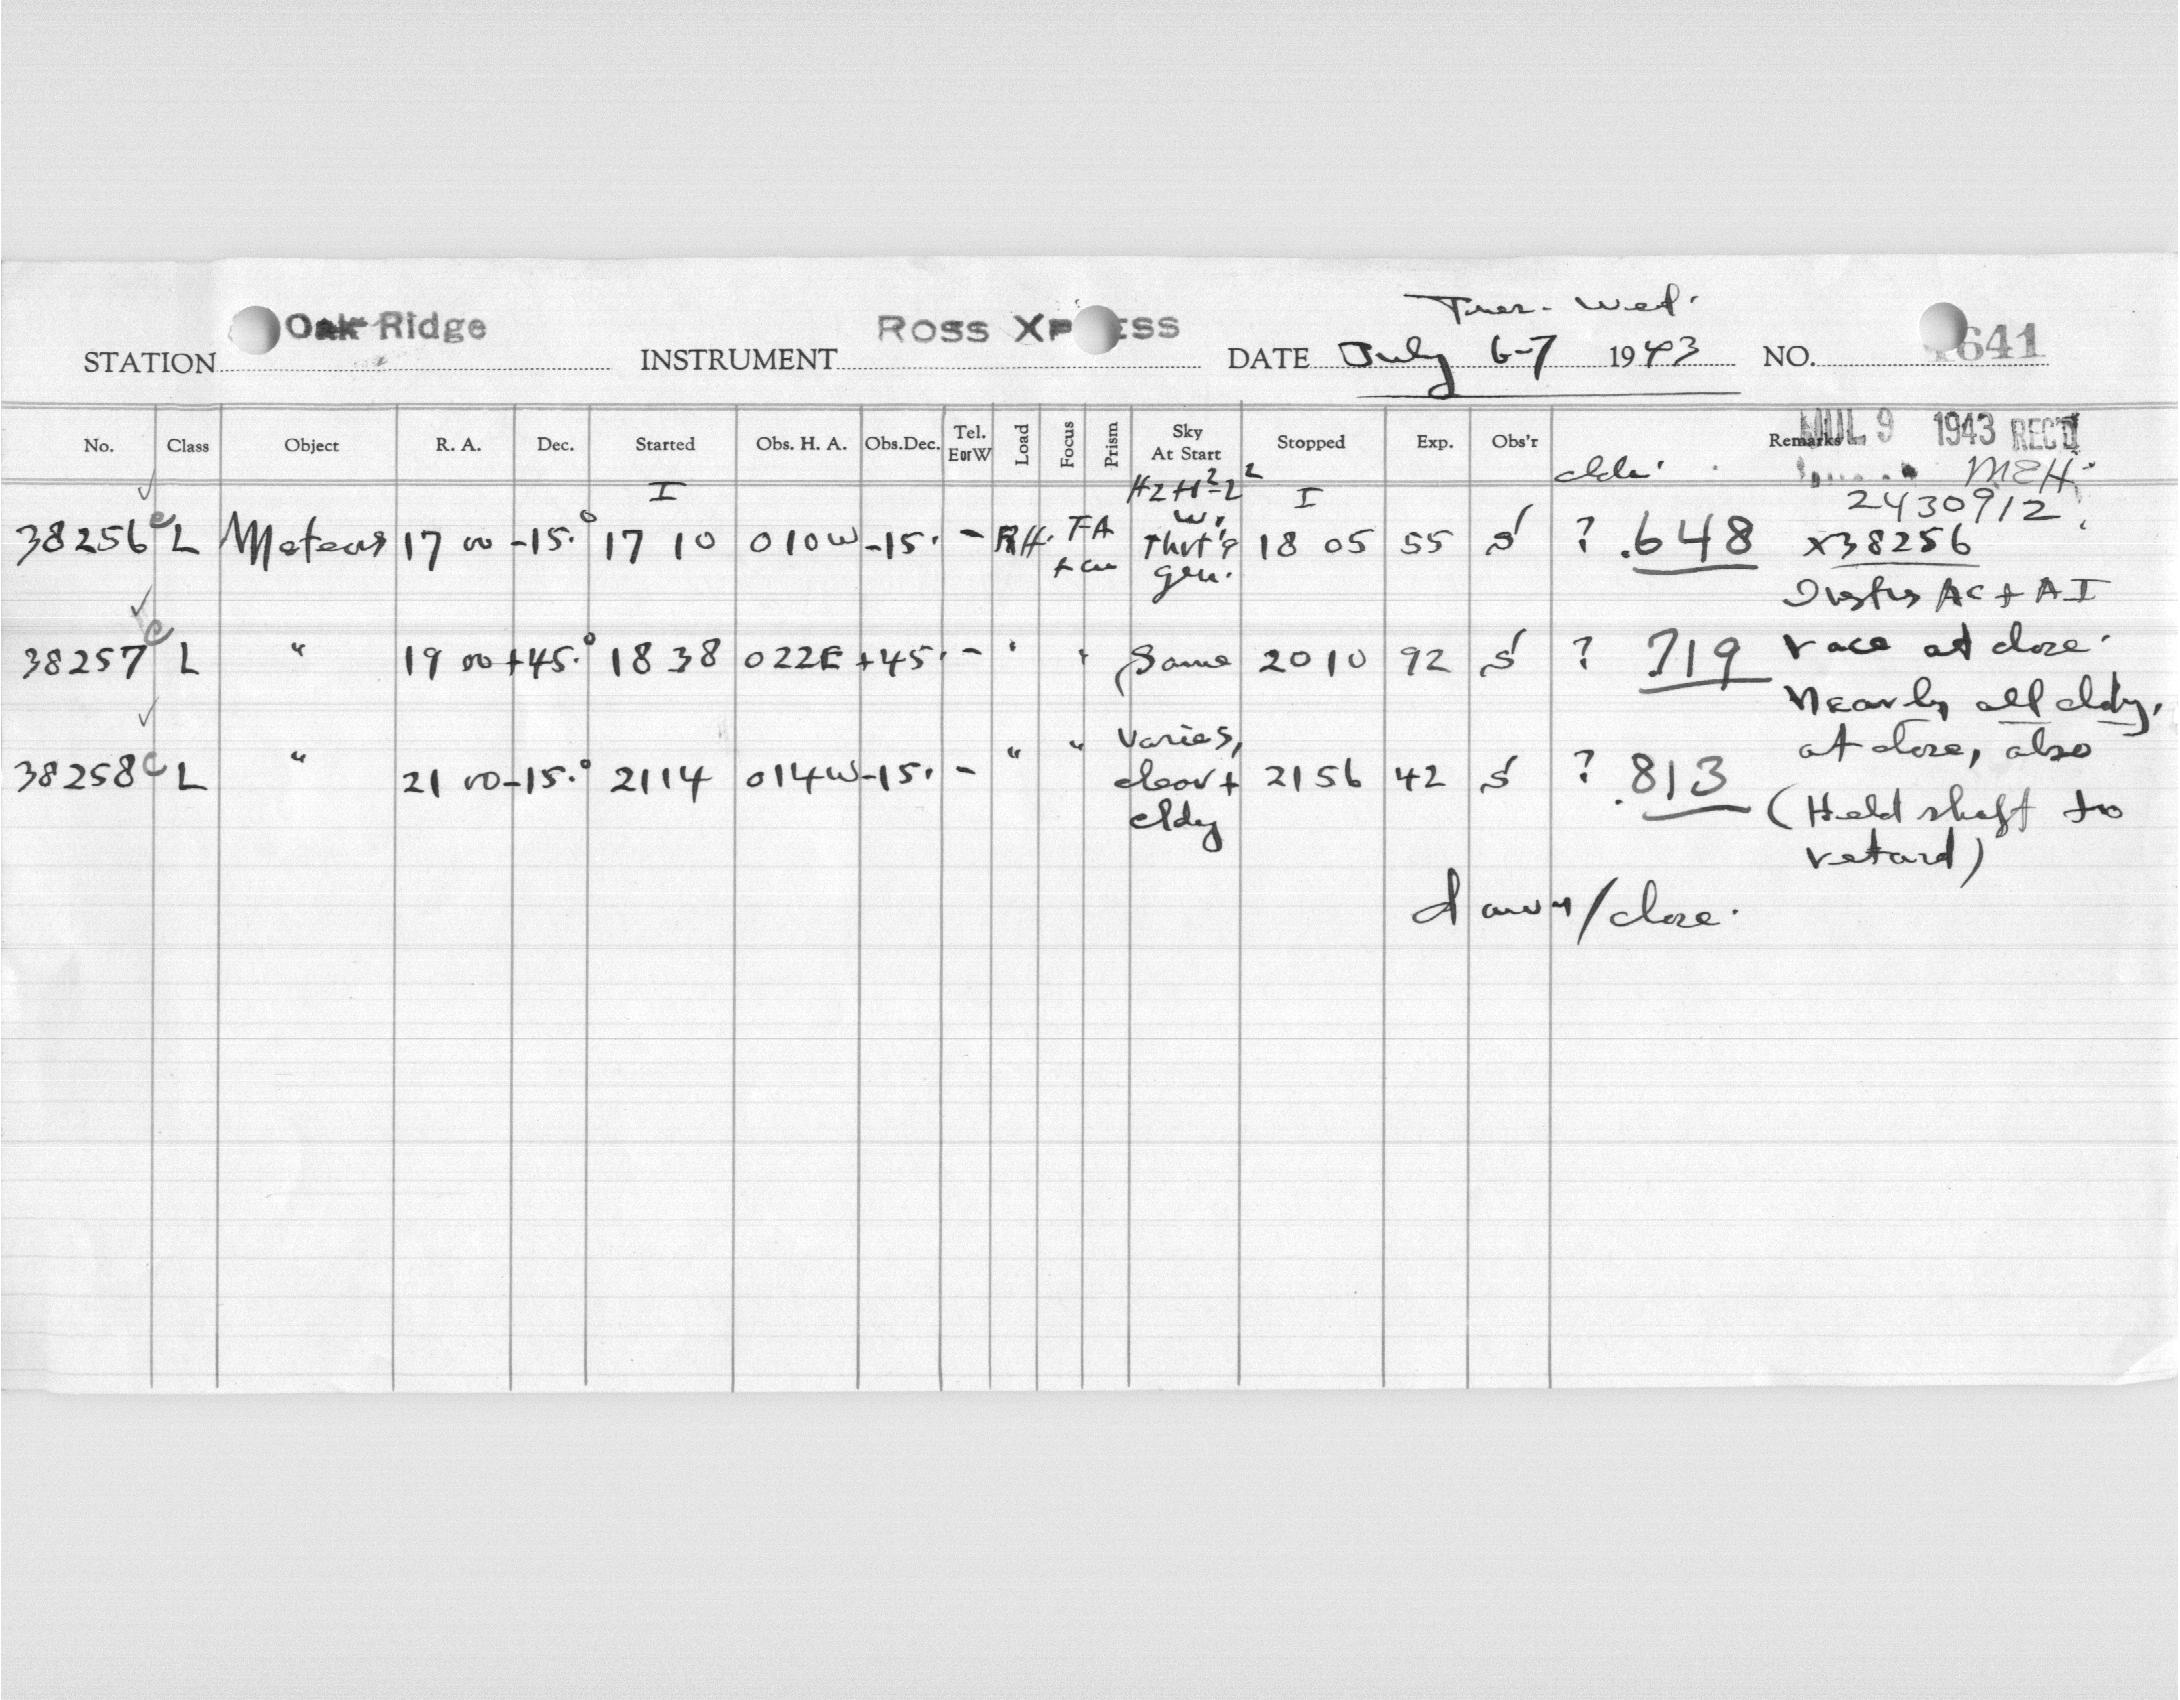 Tues. - Wed.
STATION Oak Ridge INSTRUMENT Ross XP ESS DATE July 6-7 1943 NO. 641
No. Class Object R. A. Dec. Started Obs. H. A. Obs.Dec. Tel. EorW Load Focus Prism Sky At Start Stopped Exp. Obs'r Remarks
JUL 9 1943 REC'D
MEH
I I 2430912
38256 c L Meteors 17 00 -15.° 17 10 010W -15. - RH. FA 18 05 55 S ? .648 x38256
gen.
AC + AI
38257 c L " 19 00 +45.° 18 38 022E +45. - ' ' Same 20 10 92 S ? .719 race at close.
Nearly all cldy,
38258 c L " 21 00 -15.° 21 14 014W -15. - " " varies, clear + cldy 21 56 42 S ? .813 at close, also
(Held shaft to
retard)
dawn/close.